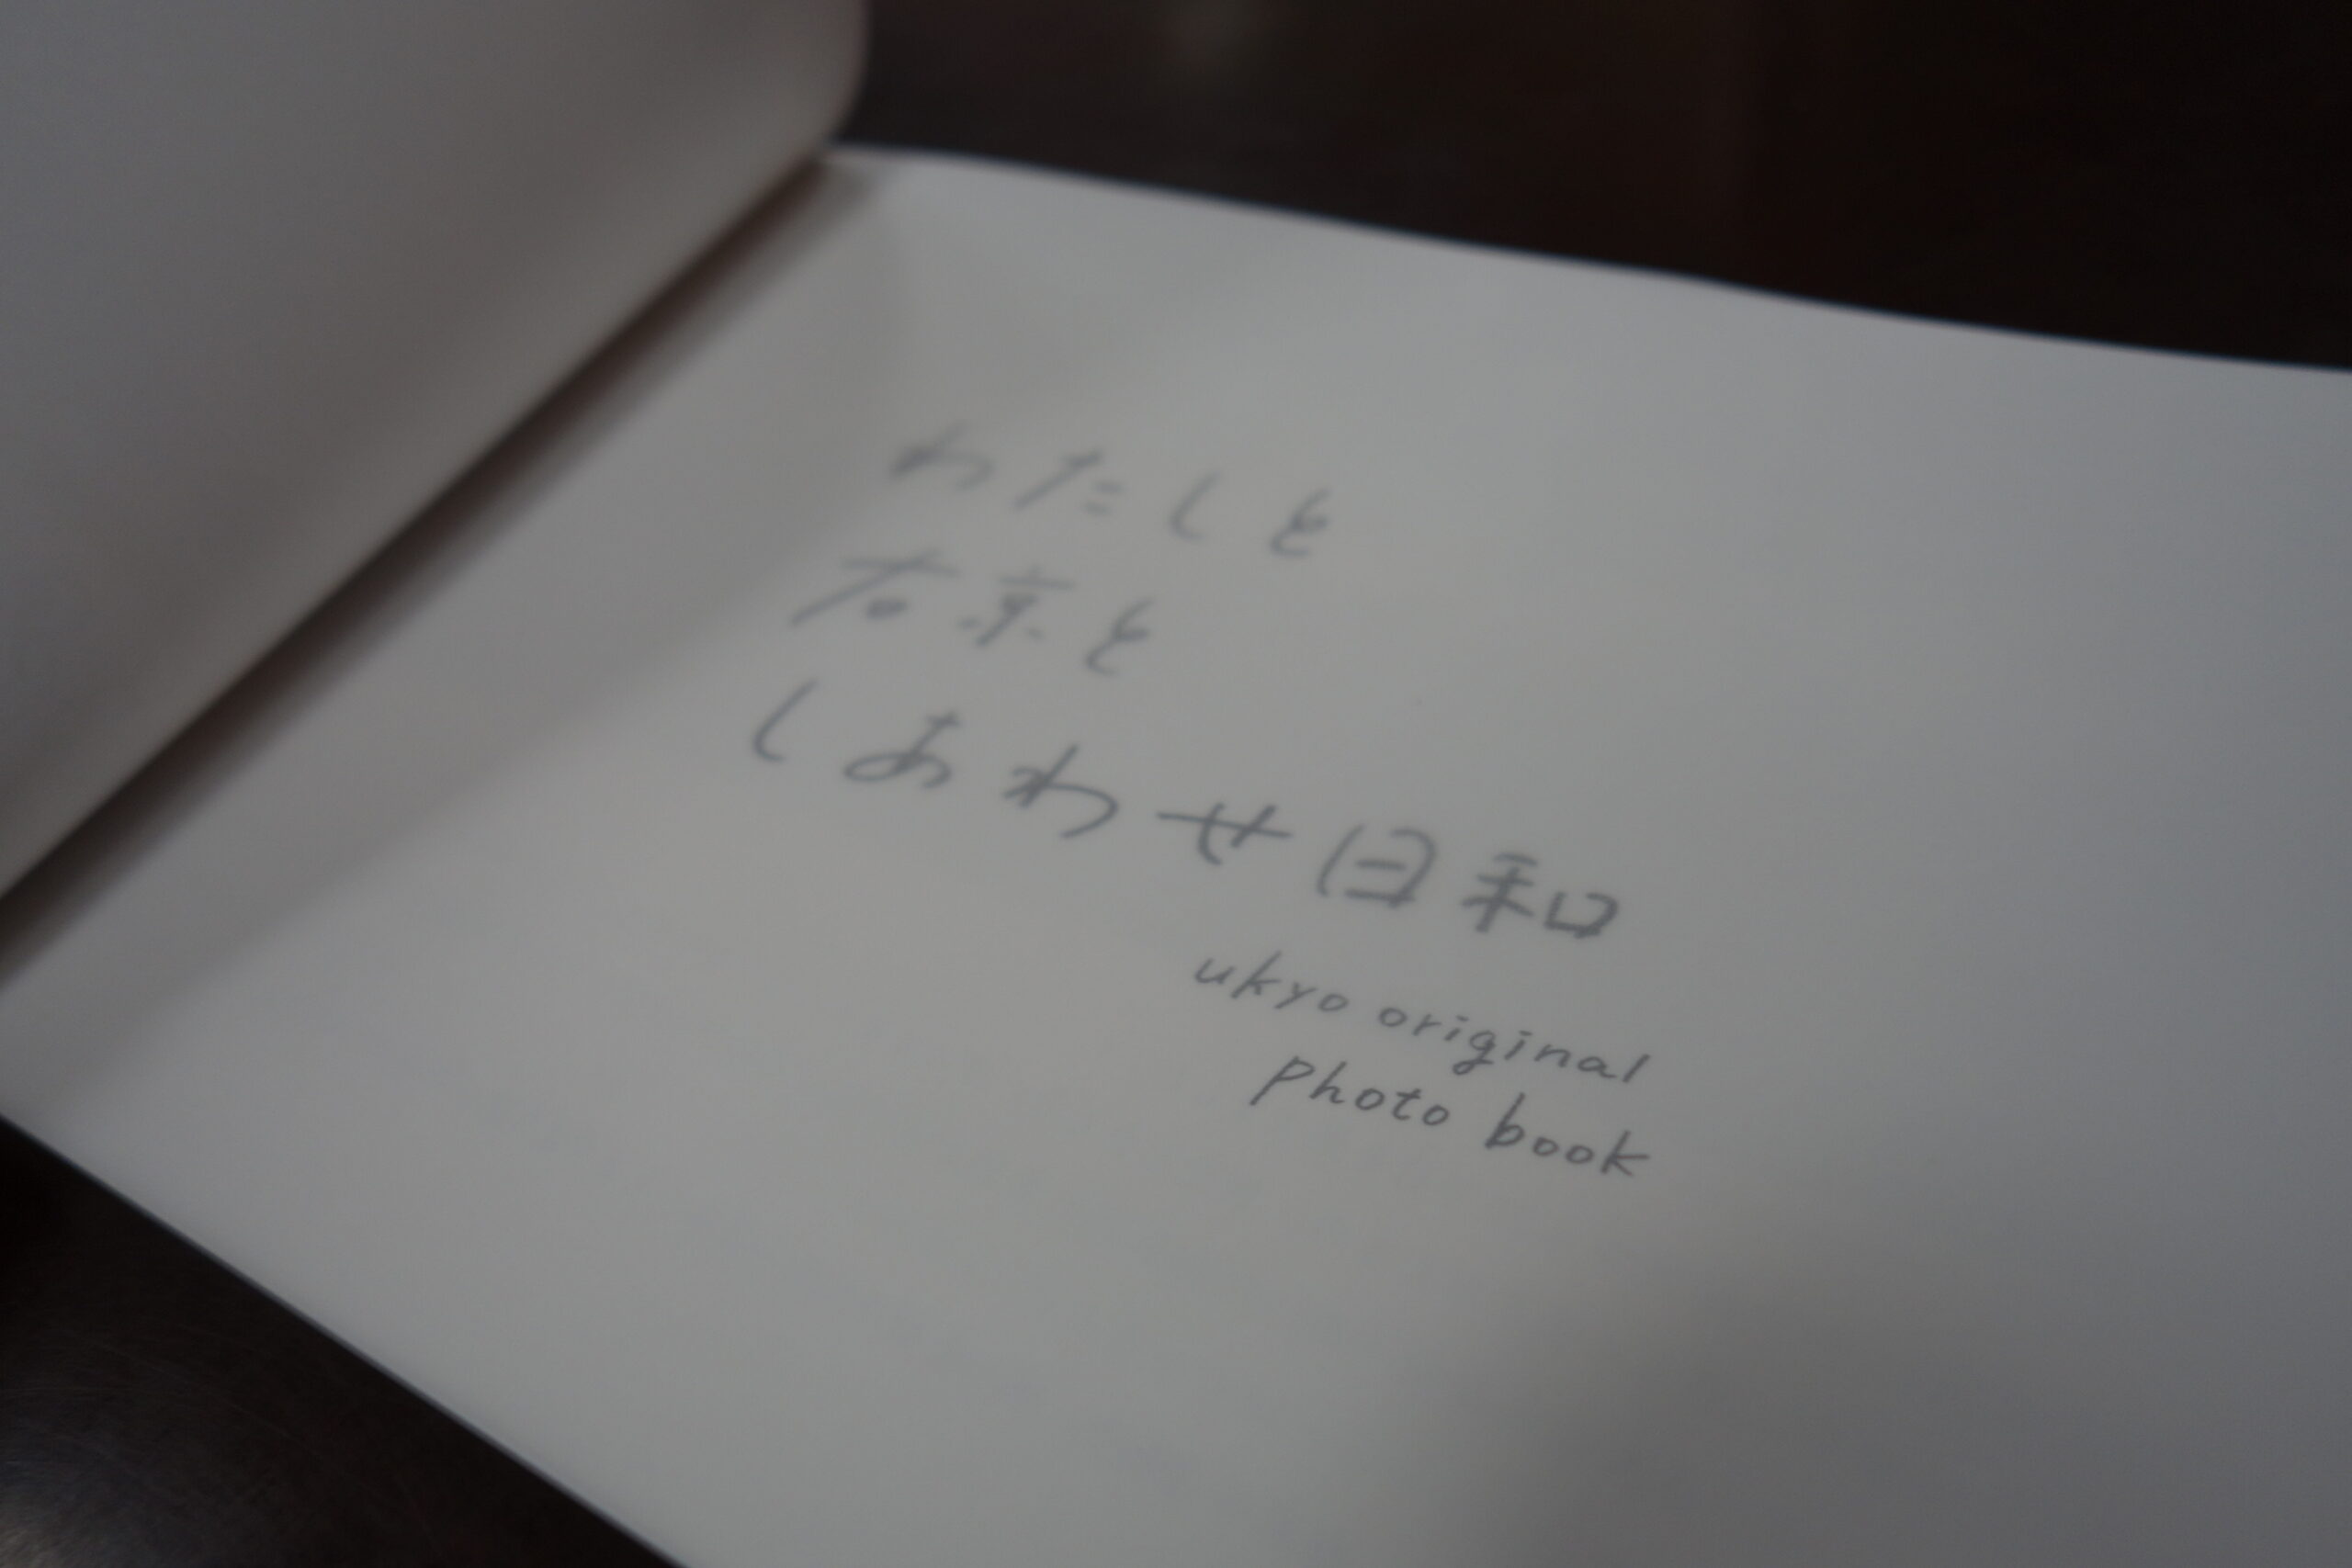 わたしと
右京と
しあわせ日和
ukyo original
photo book